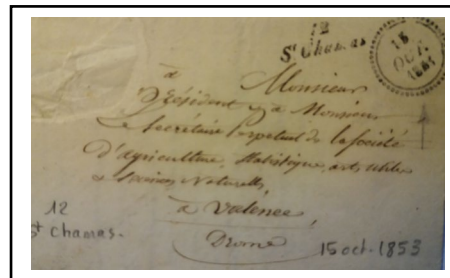 12
St Chamas
15
OCT.
à Monsieur
Président & à Monsieur
Secrétaire perpétuel de la Société
D'agriculture, statistique, arts utiles
& Sciences Naturelles,
à Valence,
Drome
12
St Chamas.
15 oct. 1853